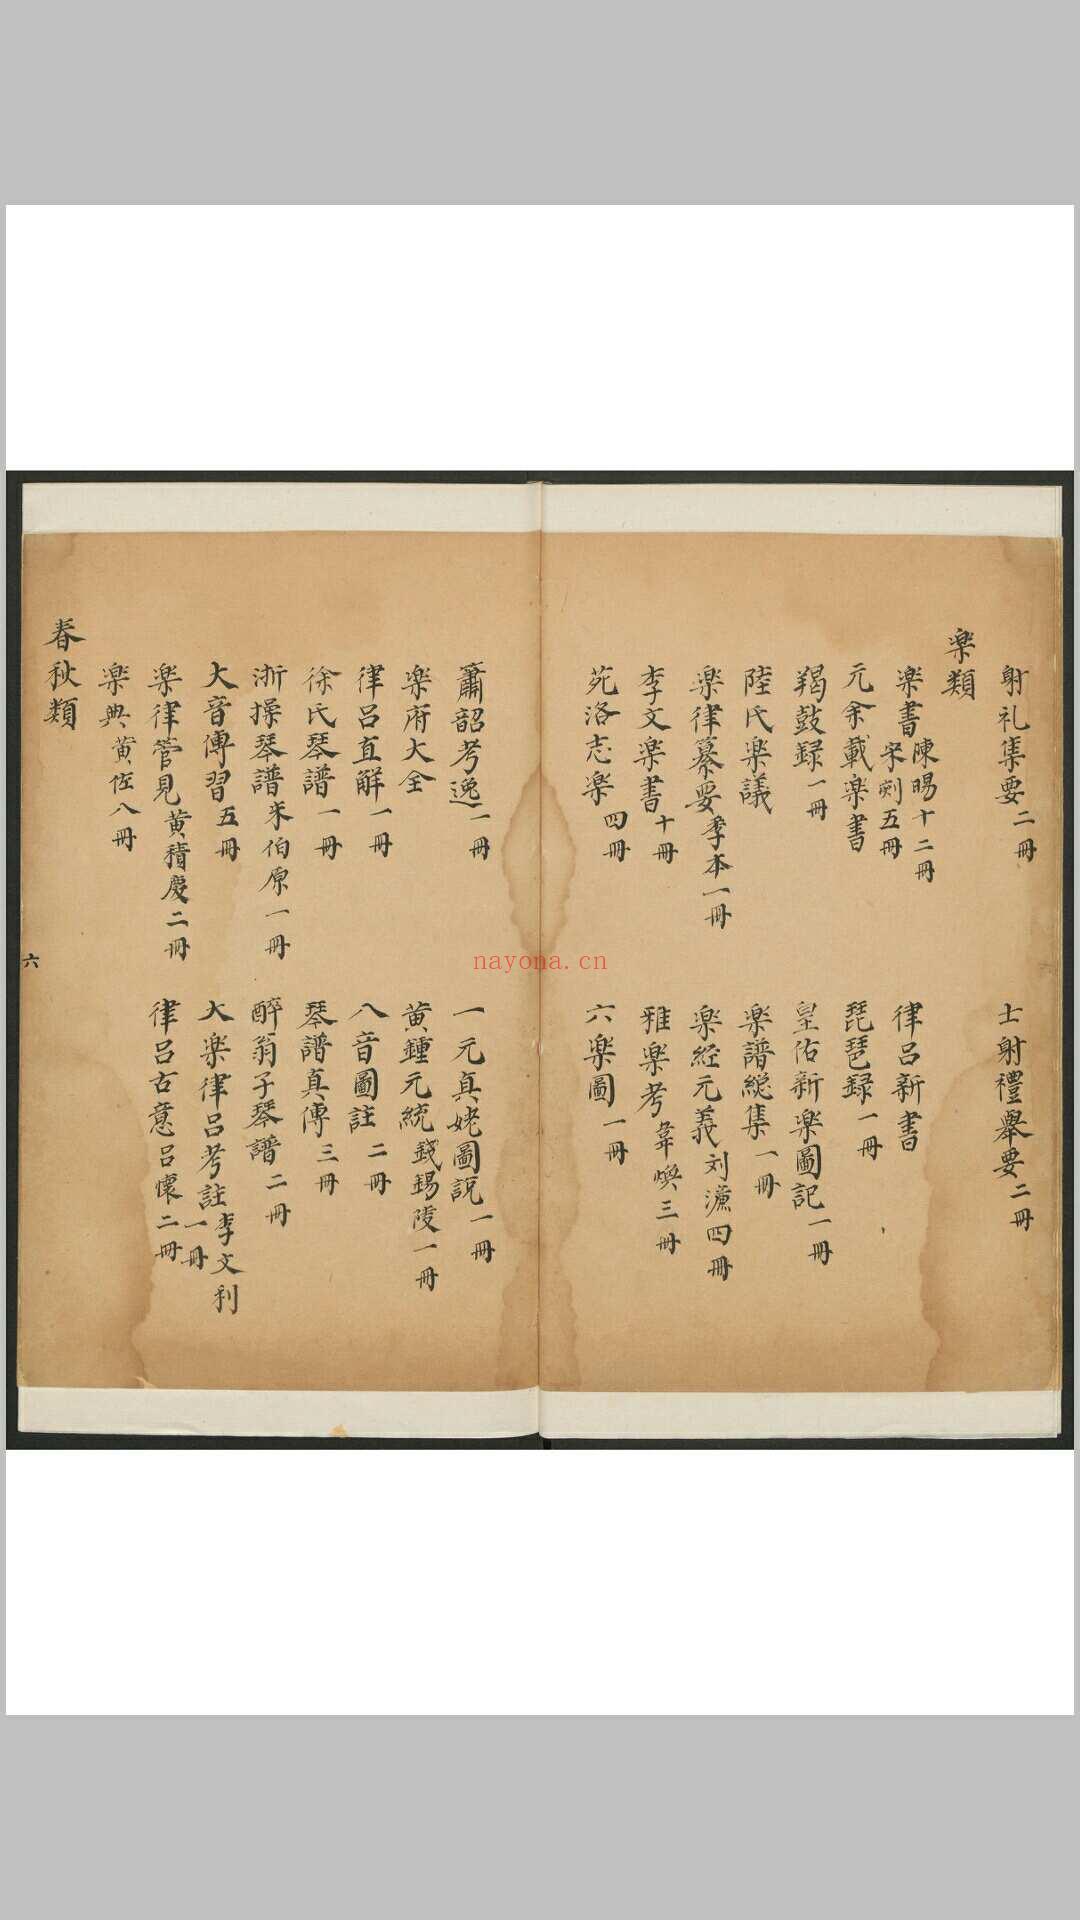 射礼集要二冊　士射禮舉要二冊
楽類
楽書陳暘十二冊宋刻五冊　律吕新書
元余載楽書　琵琶録一冊
羯鼓録一冊　皇佑新楽圖記一冊
陸氏楽議　楽譜総集一冊
楽律纂要季本一冊　楽經元義刘濂四冊
李文楽書十冊　雅楽考韋煥三冊
苑洛志楽四冊　六楽圖一冊
簫韶考逸一冊　一元真姥圖説一冊
楽府大全　黄鍾元統錢錫陵一冊
律吕直解一冊　八音圖註二冊
徐氏琴譜一冊　琴譜真傳三冊
浙操琴譜朱伯原一冊　醉翁子琴譜二冊
大音傳習五冊　大楽律吕考註李文利一冊
楽律管見黄積慶二冊　律吕古意吕懷二冊
楽典黄佐八冊
春秋類
六
nayona.cn